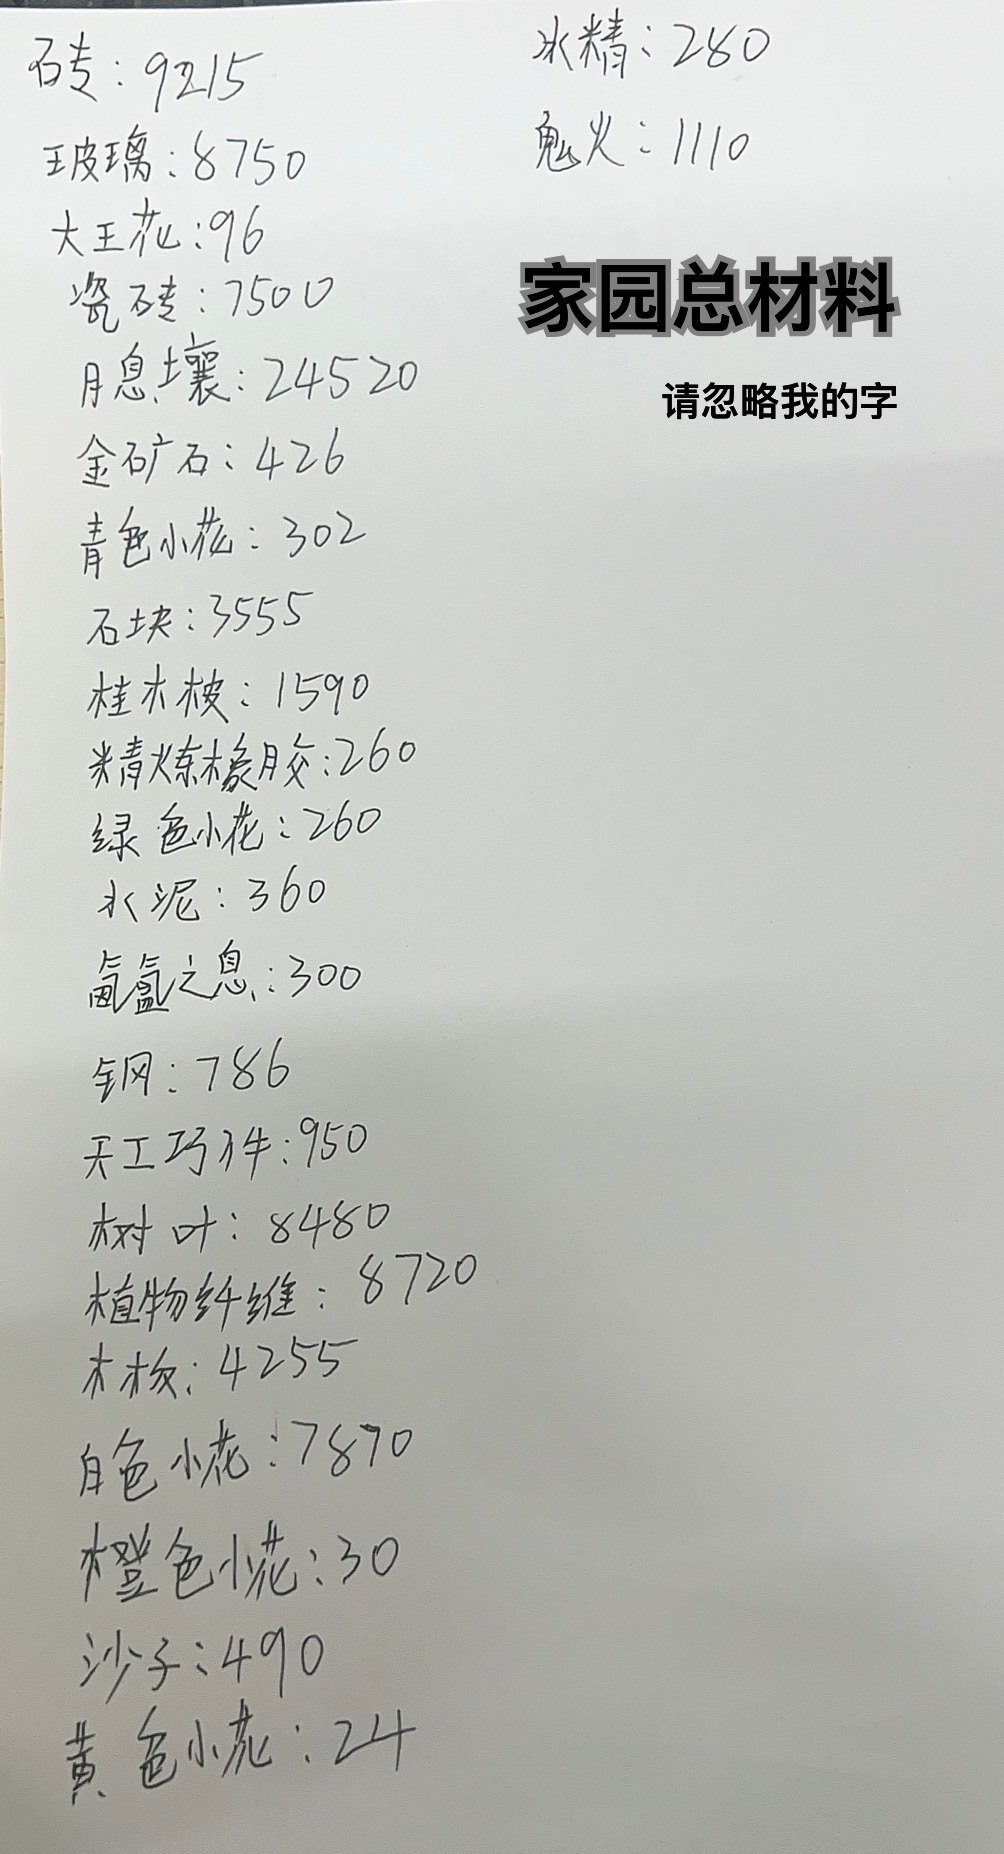 砖：9215
玻璃：8750
大王花：96
瓷砖：7500
月息壤：24520
金矿石：426
青色小花：302
石块：3555
桂木枝：1590
精炼橡胶：260
绿色小花：260
水泥：360
氤氲之息：300
钢：786
天工巧件：950
树叶：8480
植物纤维：8720
木板：4255
白色小花：7870
橙色小花：30
沙子：490
黄色小花：24
冰精：280
鬼火：1110
家园总材料
请忽略我的字